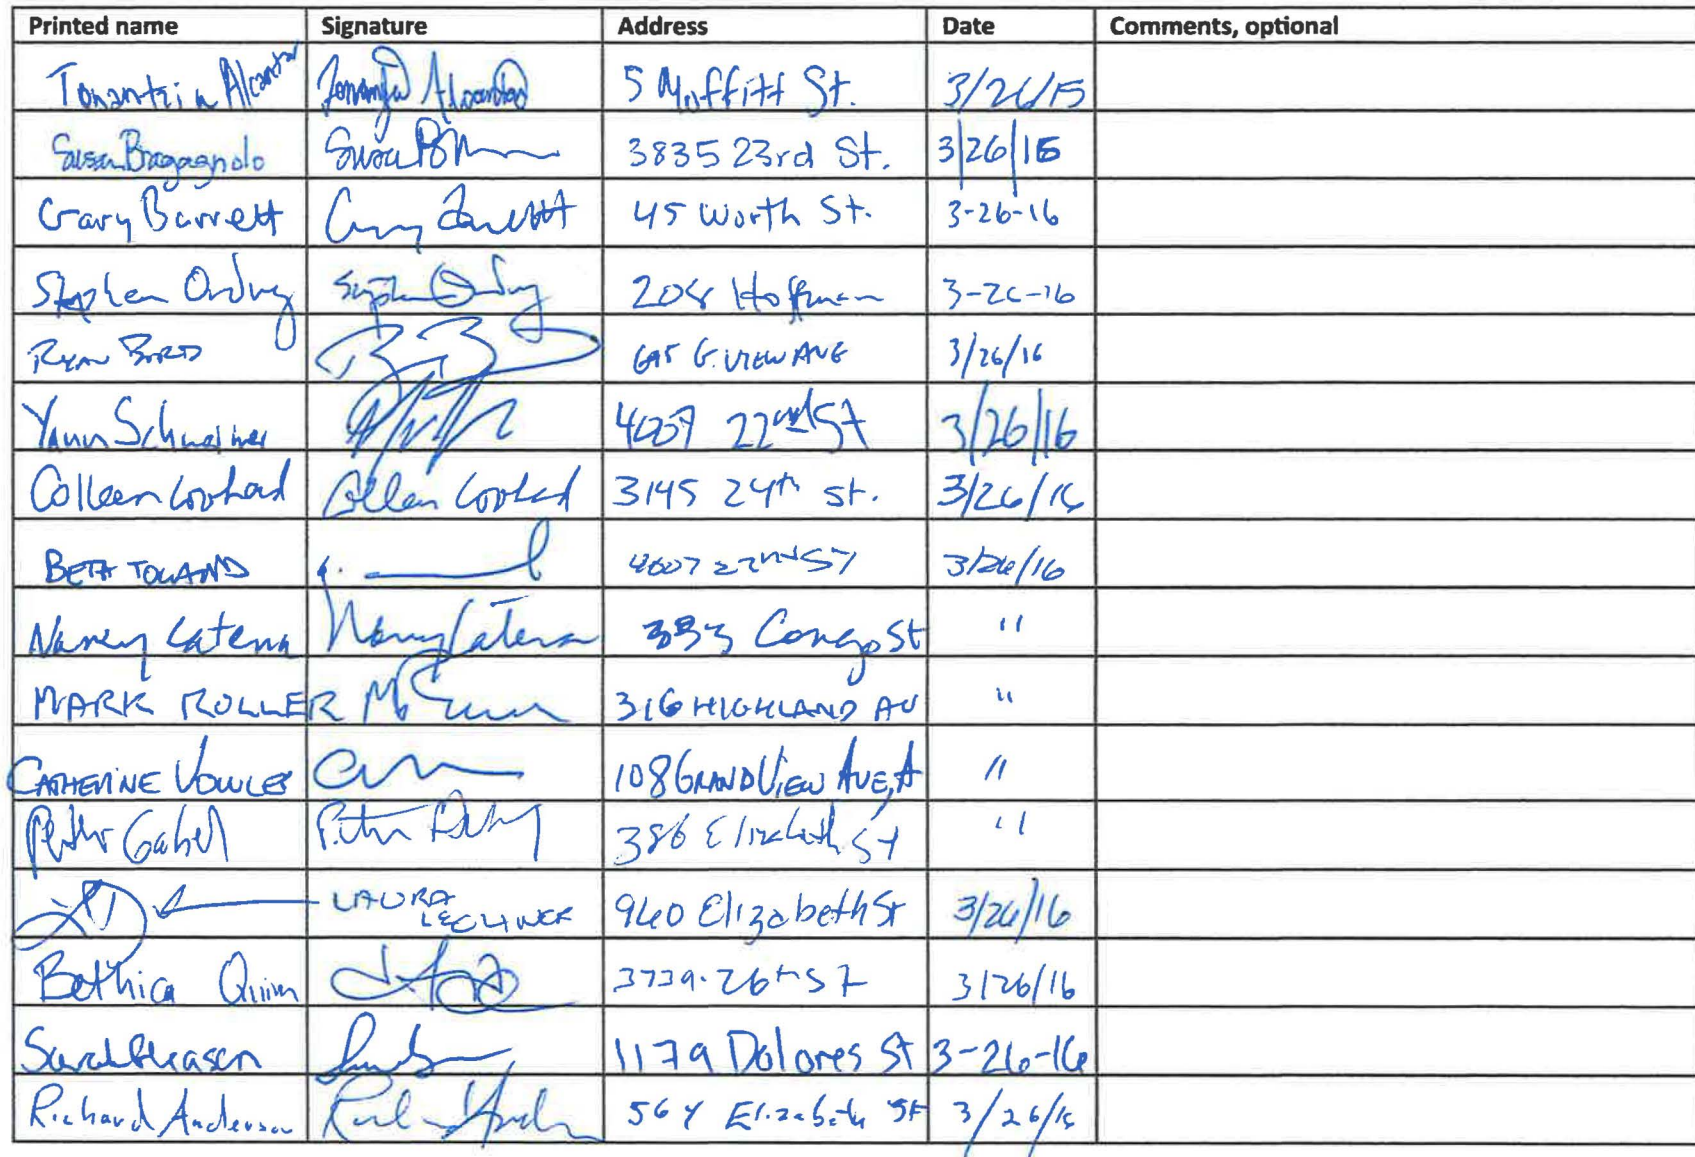 Printed name Signature Address Date Comments, optional
Tonantzin Alcantar 5 Moffitt St. 3/26/15
Susan Bragagnolo 3835 23rd St. 3/26/16
Gary Barrett Gary Barrett 45 Worth St. 3-26-16
Stephen Ording Stephen Ording 208 Hoffman 3-26-16
Ryan 695 G. VIEW AVE 3/26/16
Yann 4007 22nd St 3/26/16
Colleen Lophad Colleen Lophad 3145 24th St. 3/26/16
BETH TOLAND 4007 22nd ST 3/26/16
Nancy Catena Nancy Catena 353 Congo St "
MARK ROLLER 316 HIGHLAND AV "
CATHERINE VOWLES 108 GRANDVIEW AVE, A "
Peter Gabel Peter Gabel 386 Elizabeth St "
LAURA
LECHNER 960 Elizabeth St 3/26/16
Bethica Quinn 3739-26th St 3/26/16
Sarah Gleason 1179 Dolores St 3-26-16
Richard Anderson 564 Elizabeth St 3/26/16